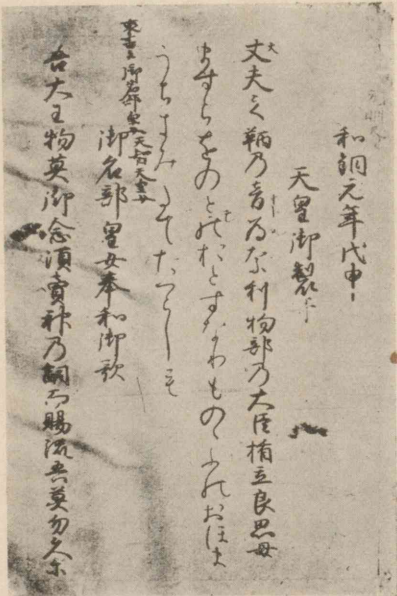 和銅元年戊申
天皇御製
丈夫之鞆乃音為奈利物部乃大臣楯立良思母
ますらをのとものおとすなりものゝふのおほま
うちきみたてたつらしも
御名部皇女奉和御歌
吾大王物莫御念須賣神乃嗣而賜流吾莫勿久尓